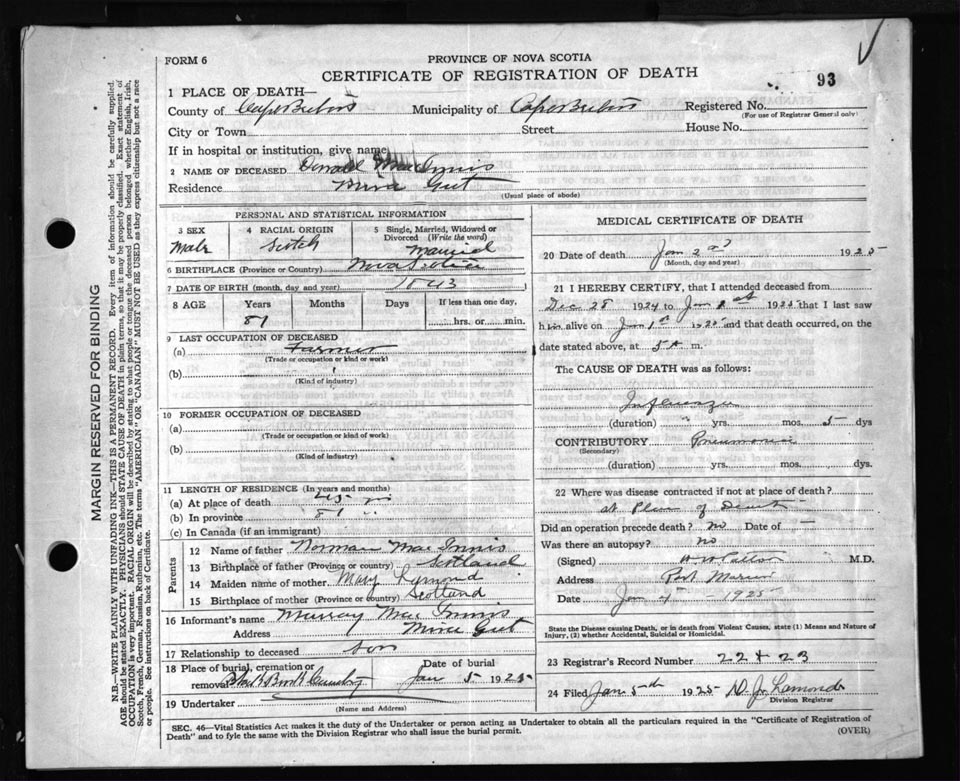 93
FORM 6
PROVINCE OF NOVA SCOTIA
CERTIFICATE OF REGISTRATION OF DEATH
1 PLACE OF DEATH—
County of Cape Breton Municipality of Cape Breton Registered No.
(For use of Registrar General only)
City or Town Street House No.
If in hospital or institution, give name
2 NAME OF DECEASED Donald MacInnis
Residence Mira Gut
(Usual place of abode)
PERSONAL AND STATISTICAL INFORMATION
3 SEX
Male
4 RACIAL ORIGIN
Scotch
5 Single, Married, Widowed or Divorced (Write the word)
Married
6 BIRTHPLACE (Province or Country) Nova Scotia
7 DATE OF BIRTH (month, day and year) 1843
8 AGE Years Months Days If less than one day,
81 hrs. or min.
9 LAST OCCUPATION OF DECEASED
(a) Farmer
(Trade or occupation or kind of work)
(b)
(Kind of industry)
10 FORMER OCCUPATION OF DECEASED
(a)
(Trade or occupation or kind of work)
(b)
(Kind of industry)
11 LENGTH OF RESIDENCE (In years and months)
(a) At place of death
(b) In province 81
(c) In Canada (if an immigrant)
Parents
12 Name of father Norman MacInnis
13 Birthplace of father (Province or country) Scotland
14 Maiden name of mother Mary
15 Birthplace of mother (Province or Country) Scotland
16 Informant's name Murray MacInnis
Address Mira Gut
17 Relationship to deceased Son
18 Place of burial, cremation or removal Black Brook Cemetery
Date of burial Jan 5 1925
19 Undertaker
(Name and Address)
MEDICAL CERTIFICATE OF DEATH
20 Date of death Jan 2nd 1925
(Month, day and year)
21 I HEREBY CERTIFY, that I attended deceased from
Dec 28 1924 to Jan 1st 1925 that I last saw
him alive on Jan 1st 1925 and that death occurred, on the
date stated above, at 5 A m.
The CAUSE OF DEATH was as follows:
Influenza
(duration) yrs. mos. 5 dys
CONTRIBUTORY Pneumonia
(Secondary)
(duration) yrs. mos. dys.
22 Where was disease contracted if not at place of death?
at Place of Death
Did an operation precede death? no Date of —
Was there an autopsy? no
(Signed) M.D.
Address Port Morien
Date Jan 4 - 1925
State the Disease causing Death, or in death from Violent Causes, state (1) Means and Nature of Injury, (2) whether Accidental, Suicidal or Homicidal.
23 Registrar's Record Number 22 & 23
24 Filed Jan 5th 1925 Lamond
Division Registrar
SEC. 46—Vital Statistics Act makes it the duty of the Undertaker or person acting as Undertaker to obtain all the particulars required in the "Certificate of Registration of
Death" and to fyle the same with the Division Registrar who shall issue the burial permit.
(OVER)
MARGIN RESERVED FOR BINDING
N.B.—WRITE PLAINLY WITH UNFADING INK—THIS IS A PERMANENT RECORD. Every item of information should be carefully supplied.
AGE should be stated EXACTLY. PHYSICIANS should STATE CAUSE OF DEATH in plain terms, so that it may be properly classified. Exact statement of
OCCUPATION is very important. RACIAL ORIGIN will be described by stating to what people or tongue the deceased person belonged whether English, Irish,
Scotch, French, German, Russian, Ruthenian, etc. The terms "AMERICAN" OR "CANADIAN" MUST NOT BE USED as they express citizenship but not a race
or people. See instructions on back of Certificate.